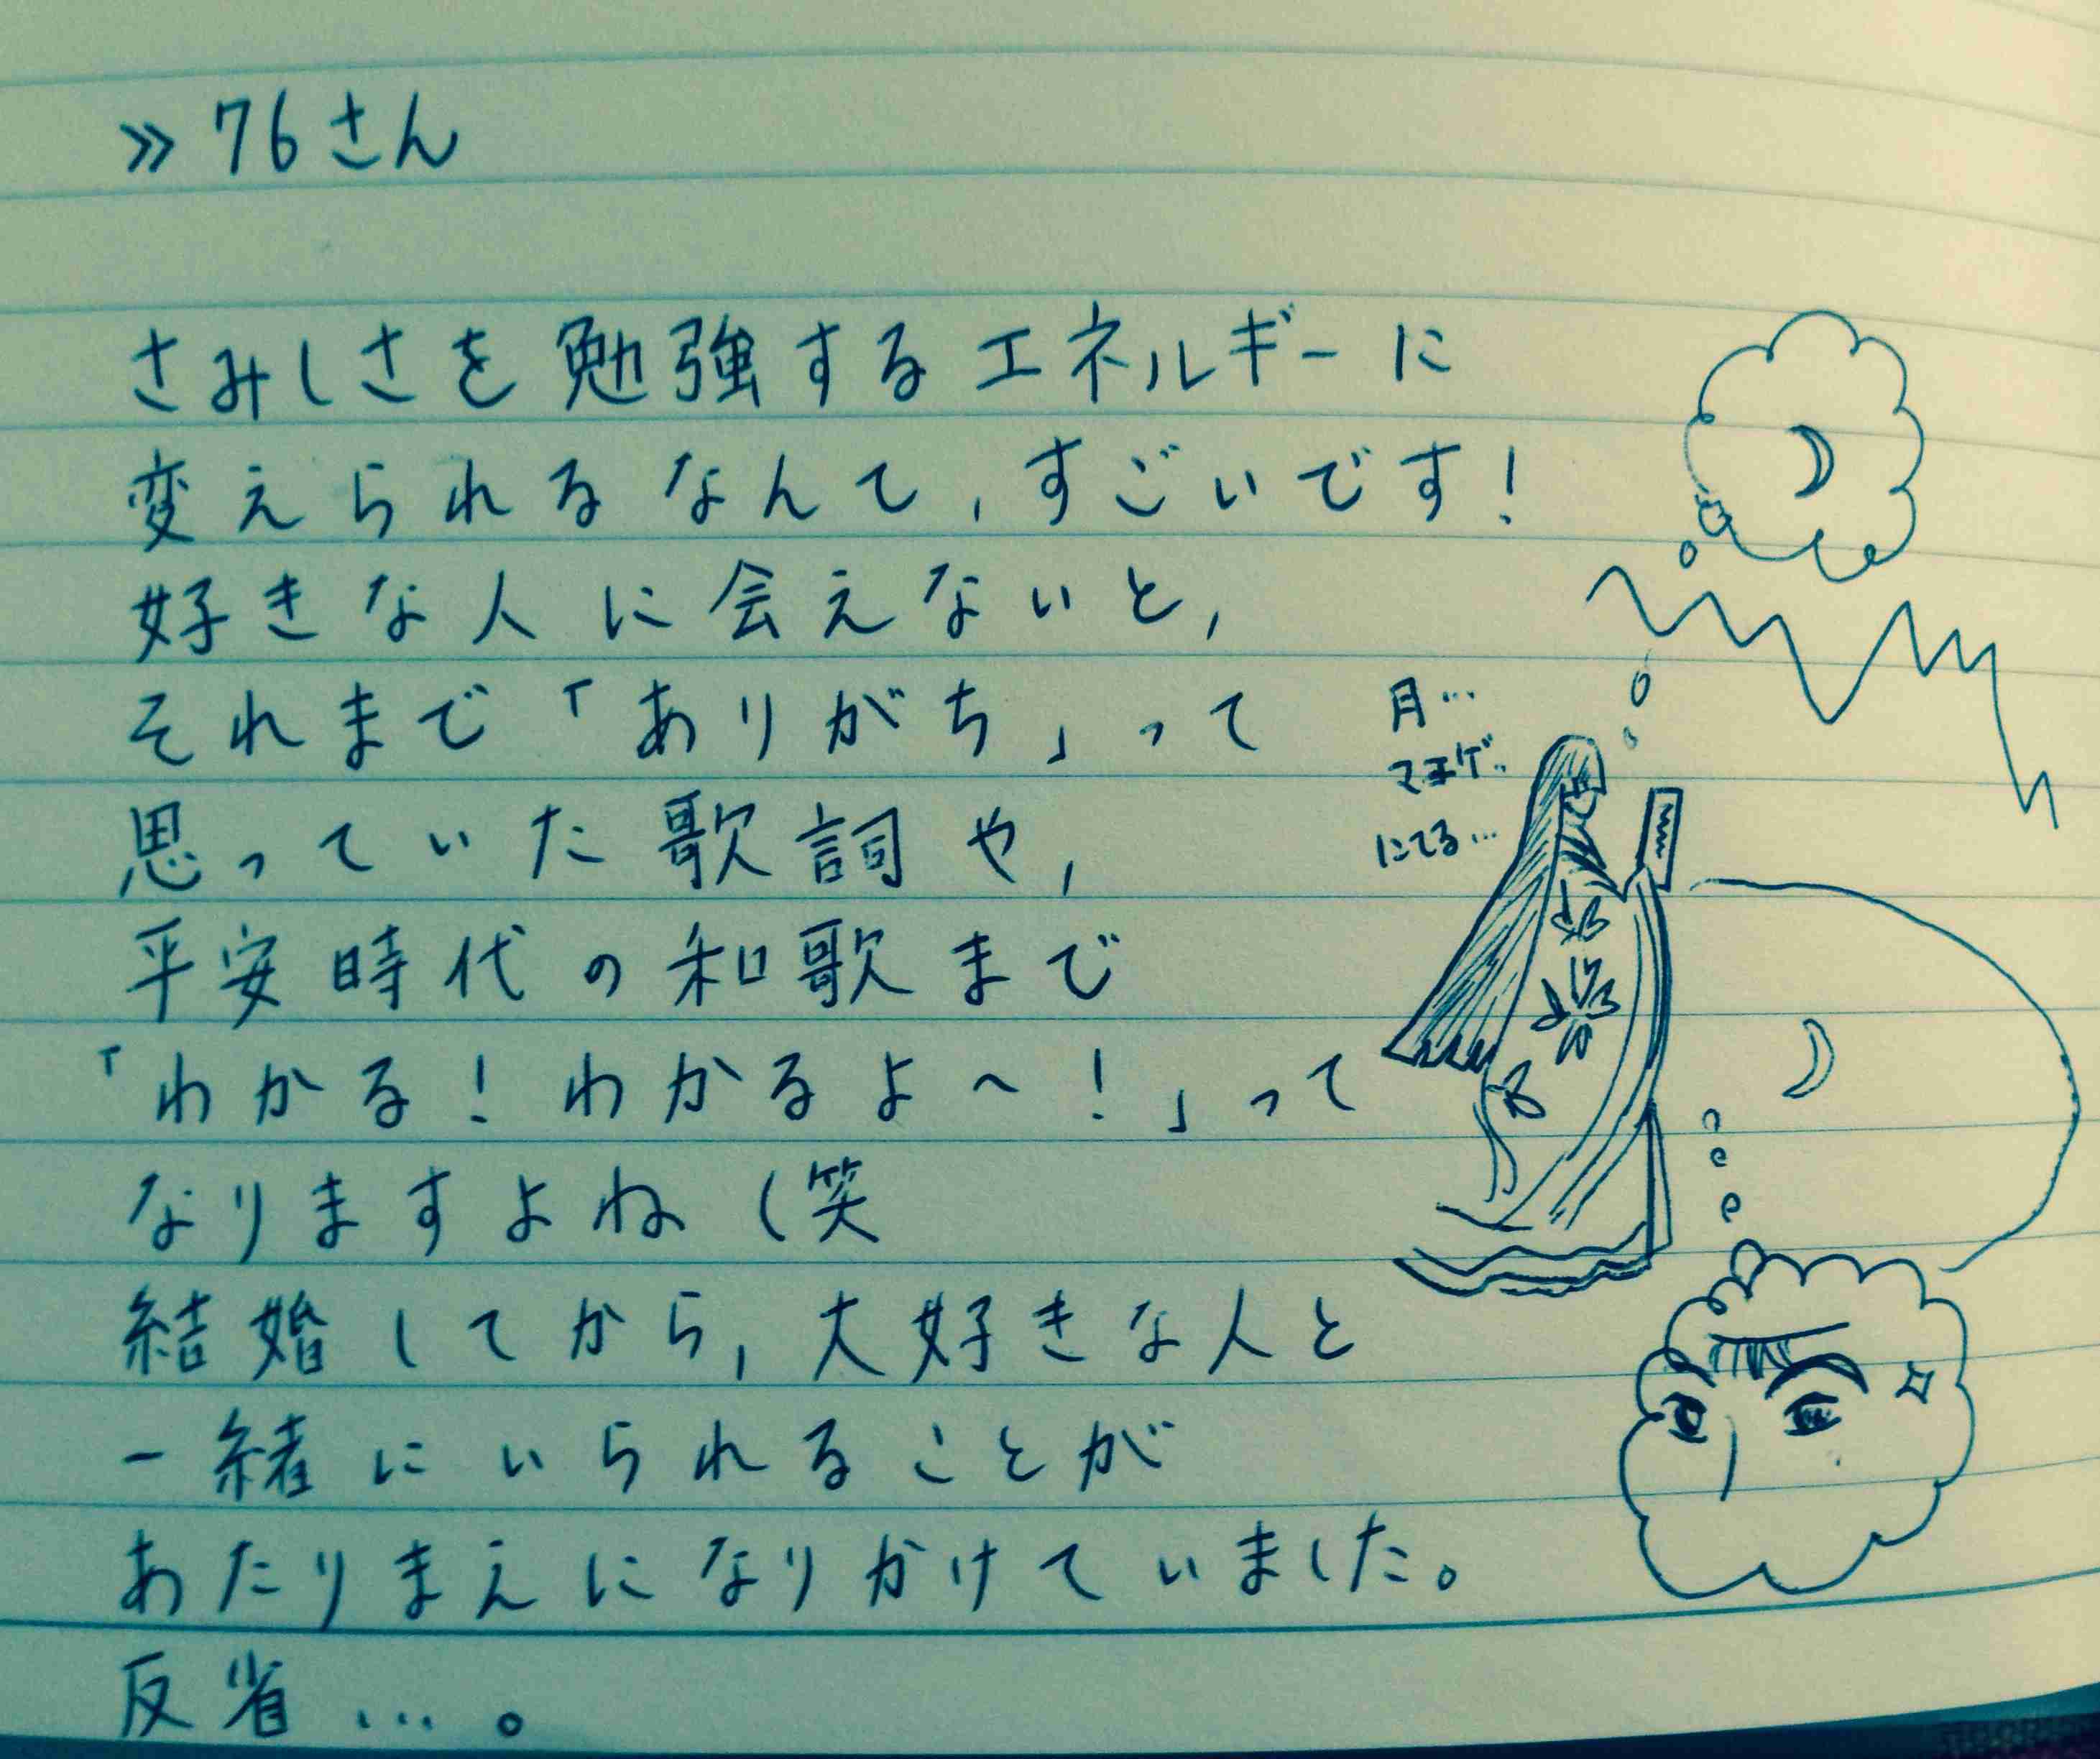 ≫76さん
さみしさを勉強するエネルギーに
変えられるなんて,すごいです!
好きな人に会えないと,
それまで「ありがち」って
思っていた歌詞や,
平安時代の和歌まで
「わかる!わかるよ~!」って
なりますよね(笑
結婚してから,大好きな人と
一緒にいられることが
あたりまえになりかけていました。
反省…。
月…
マユゲ…
にてる…